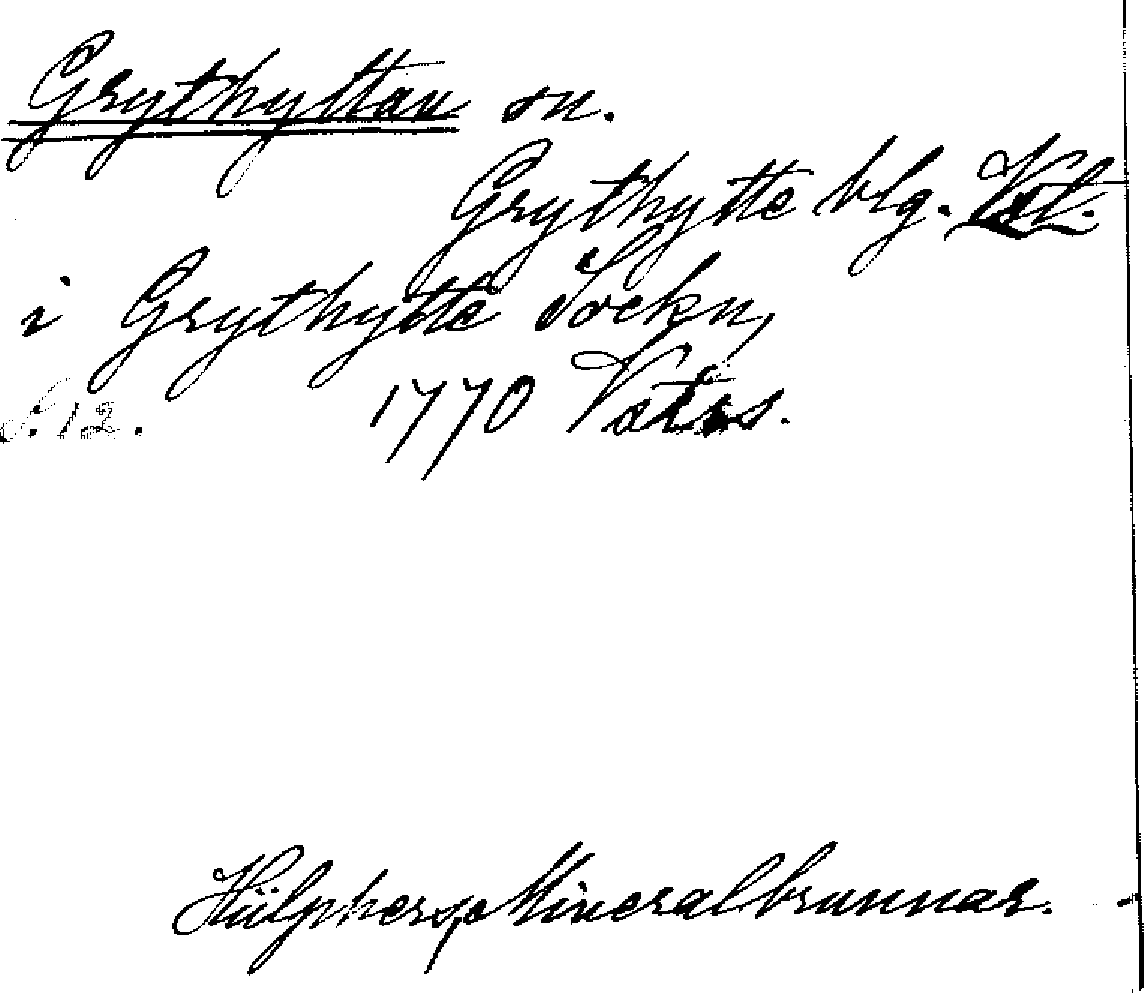 Grythyttan sn.
Grythytte blg. Vstl.
i Grythytte Sockn,
S. 12. 1770
Hülphers, Mineralbrunnar.